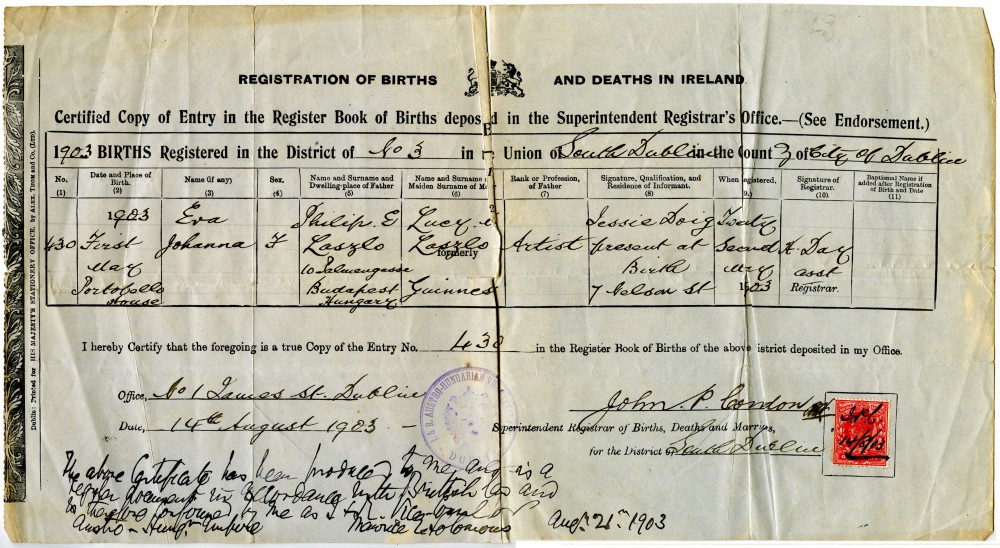 REGISTRATION OF BIRTHS AND DEATHS IN IRELAND
Certified Copy of Entry in the Register Book of Births deposed in the Superintendent Registrar's Office.—(See Endorsement.)
1903 BIRTHS Registered in the District of No 3 in Union of South Dublin in the Count y of City of Dublin
No. Date and Place of Birth. Name (if any) Sex. Name and Surname and Dwelling-place of Father Name and Surname and Maiden Surname of Rank or Profession, of Father Signature, Qualification, and Residence of Informant. When registered. Signature of Registrar. Baptismal Name if added after Registration of Birth and Date
(1) (2) (3) (4) (5) (6) (7) (8) (9.) (10). (11)
1903 Eva Philip. E Lucy. Jessie Doig Twenty
430 First Johanna F Laszlo Laszlo Artist present at Second H. Day
formerly
May 10 Palmengasse Birth May asst
Portobello House Budapest Hungary Guinness 7 Nelson St 1903 Registrar.
I hereby Certify that the foregoing is a true Copy of the Entry No. 430 in the Register Book of Births of the above istrict deposited in my Office.
Office, No 1 James St. Dublin
John. P. Condon
Date, 14th August 1903 -
Superintendent Registrar of Births, Deaths and Marrges,
for the District of South Dublin
14/8/03
The above Certificate has been produced to me, and is a
regular document in accordance with British law and
is therefore confirmed by me as I & R. Vice-Consul of
Austro-Hungn Empire Maurice E Solomons Augt 21st 1903
I & R. AUSTRO-HUNGARIAN DUBLIN
Dublin: Printed for HIS MAJESTY'S STATIONERY OFFICE, by ALEX. THOM and Co. (LTD).